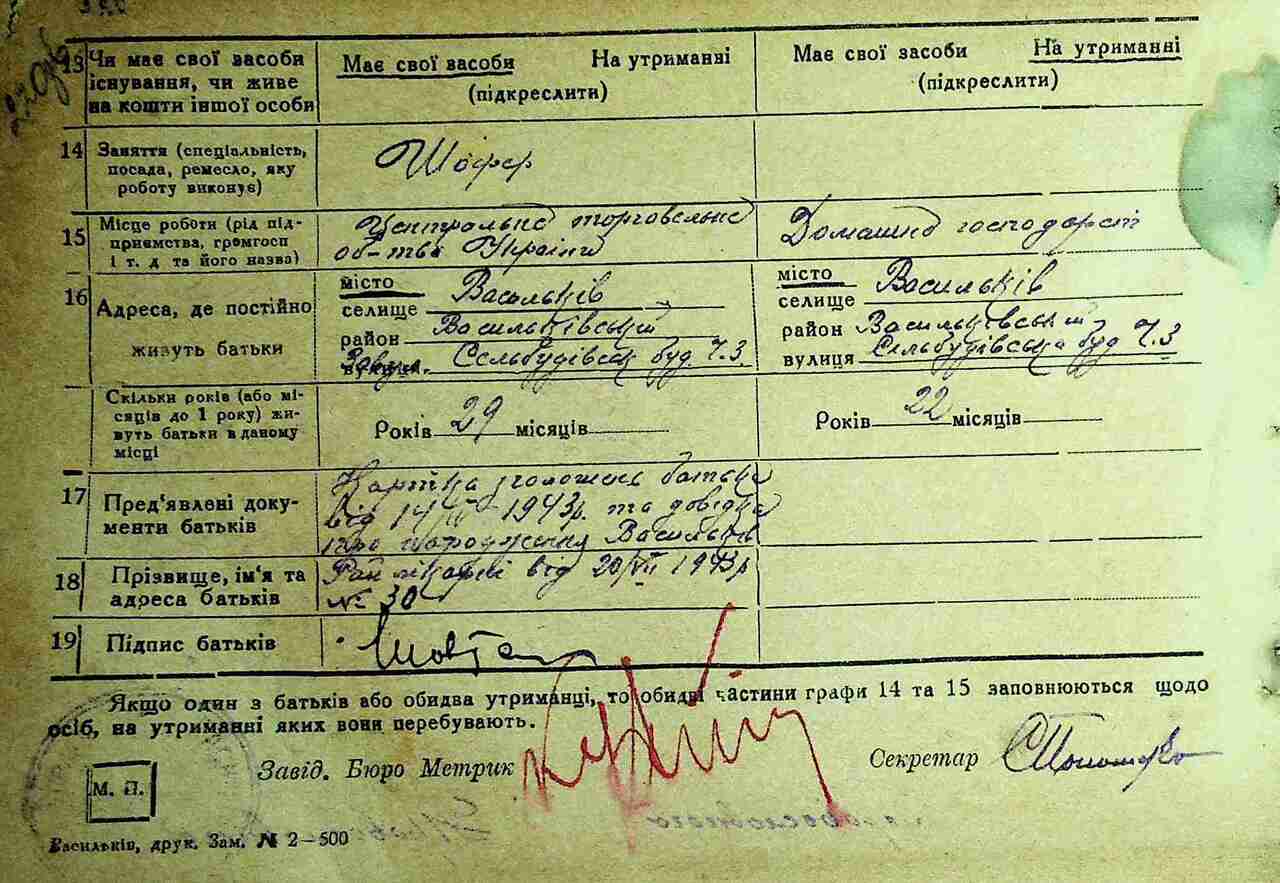 13 Чи має свої засоби існування, чи живе на кошти іншої особи
Має свої засоби На утриманні
(підкреслити)
Має свої засоби На утриманні
(підкреслити)
14 Заняття (спеціальність, посада, ремесло, яку роботу виконує)
Шофер
15 Місце роботи (рід підприємства, громгосп і т. д та його назва)
Центральне торговельне
об-тво України
Домашнє господарст
16 Адреса, де постійно живуть батьки
місто
селище Васильків
район Васильківський
вулиця. Сельбудівськ буд. Ч. 3
місто
селище Васильків
район Васильківський
вулиця Сельбудівська буд Ч. 3
Скільки років (або місяців до 1 року) живуть батьки в даному місці
Років 29 місяців
Років 22 місяців
17 Пред'явлені документи батьків
Картка зголошень батька
від 14/ 1943р. та довідка
про народження Васильків
18 Прізвище, ім'я та адреса батьків
Рай лікарні від 20/VII 1943р
№ 30
19 Підпис батьків
Якщо один з батьків або обидва утриманці, то обидві частини графи 14 та 15 заповнюються щодо
осіб, на утриманні яких вони перебувають.
Завід. Бюро Метрик
Секретар
М. П.
Васильків, друк. Зам. № 2—500